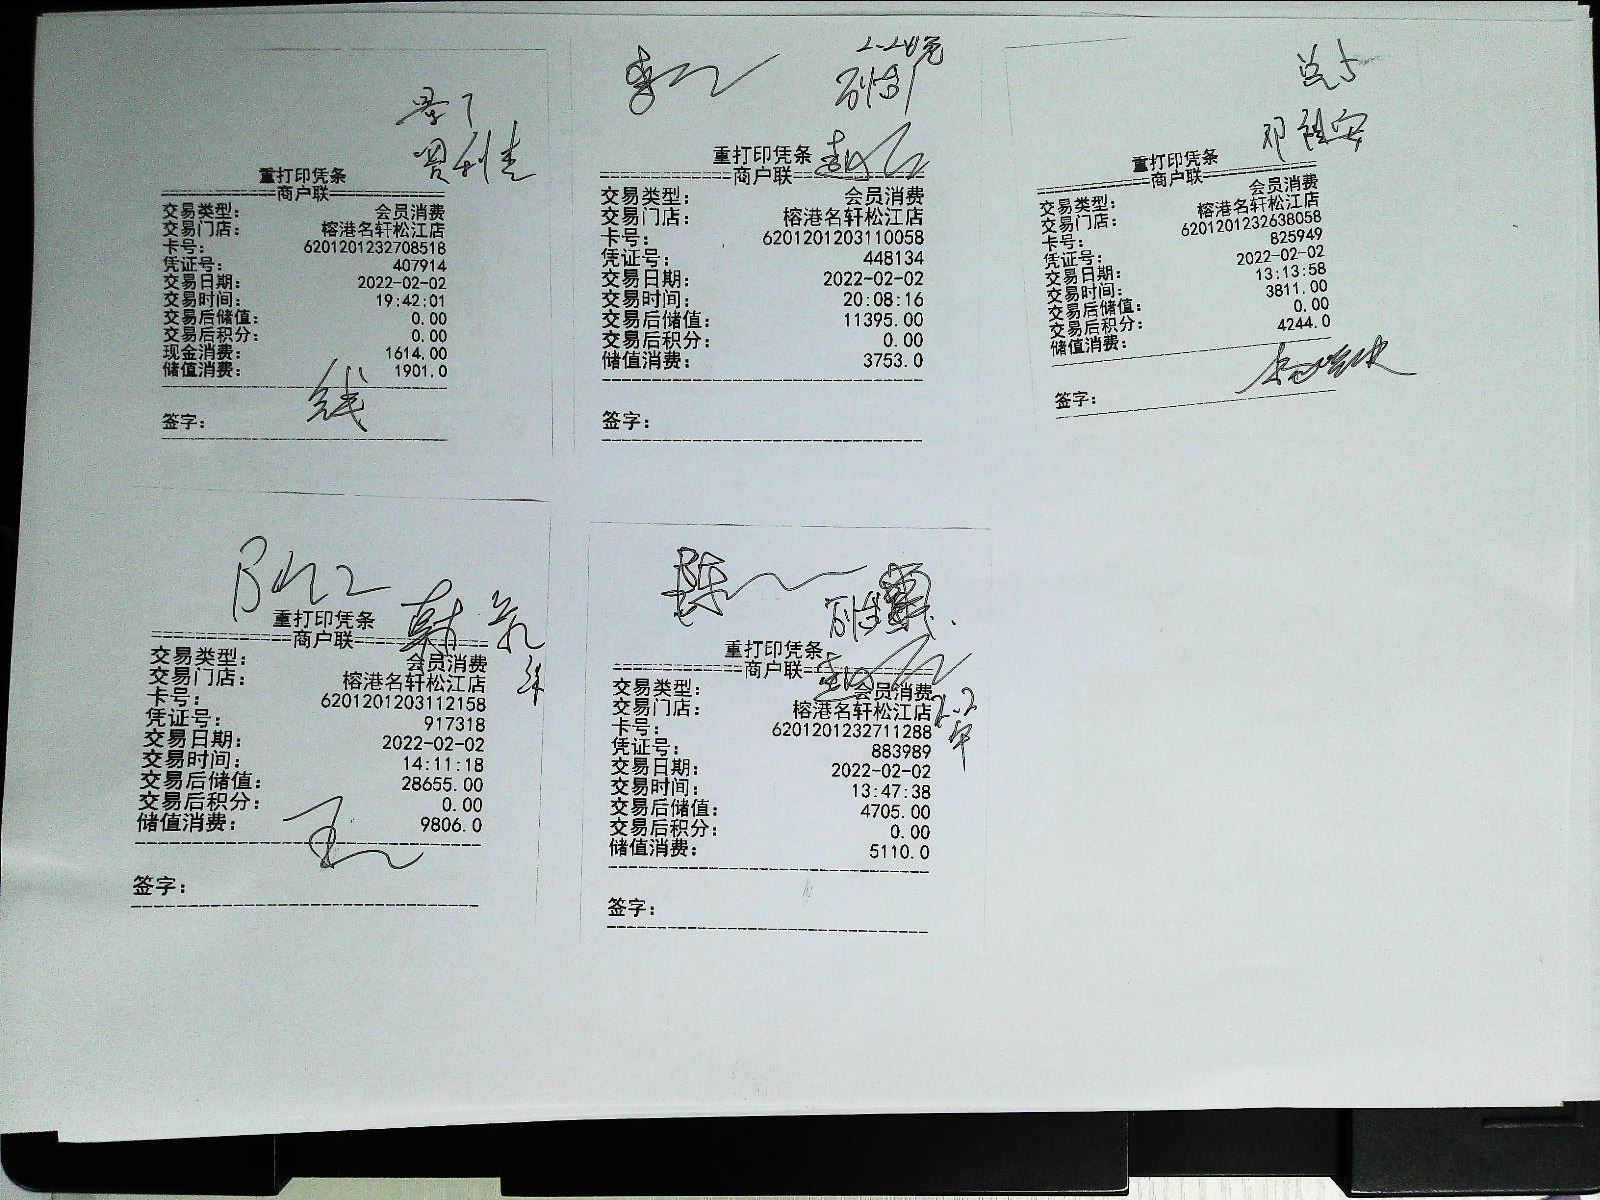 重打印凭条
商户联
交易类型: 会员消费
交易门店: 榕港名轩松江店
卡号: 6201201232708518
凭证号: 407914
交易日期: 2022-02-02
交易时间: 19:42:01
交易后储值: 0.00
交易后积分: 0.00
现金消费: 1614.00
储值消费: 1901.0
签字:
2-2
重打印凭条
商户联
交易类型: 会员消费
交易门店: 榕港名轩松江店
卡号: 6201201203110058
凭证号: 448134
交易日期: 2022-02-02
交易时间: 20:08:16
交易后储值: 11395.00
交易后积分: 0.00
储值消费: 3753.0
签字:
重打印凭条
商户联
交易类型: 会员消费
交易门店: 榕港名轩松江店
卡号: 6201201232638058
凭证号: 825949
交易日期: 2022-02-02
交易时间: 13:13:58
交易后储值: 3811.00
交易后积分: 0.00
储值消费: 4244.0
签字:
重打印凭条
商户联
交易类型: 会员消费
交易门店: 榕港名轩松江店
卡号: 6201201203112158
凭证号: 917318
交易日期: 2022-02-02
交易时间: 14:11:18
交易后储值: 28655.00
交易后积分: 0.00
储值消费: 9806.0
签字:
陈
重打印凭条
商户联
交易类型: 会员消费
交易门店: 榕港名轩松江店
2-2
卡号: 6201201232711288
凭证号: 883989
交易日期: 2022-02-02
交易时间: 13:47:38
交易后储值: 4705.00
交易后积分: 0.00
储值消费: 5110.0
签字: